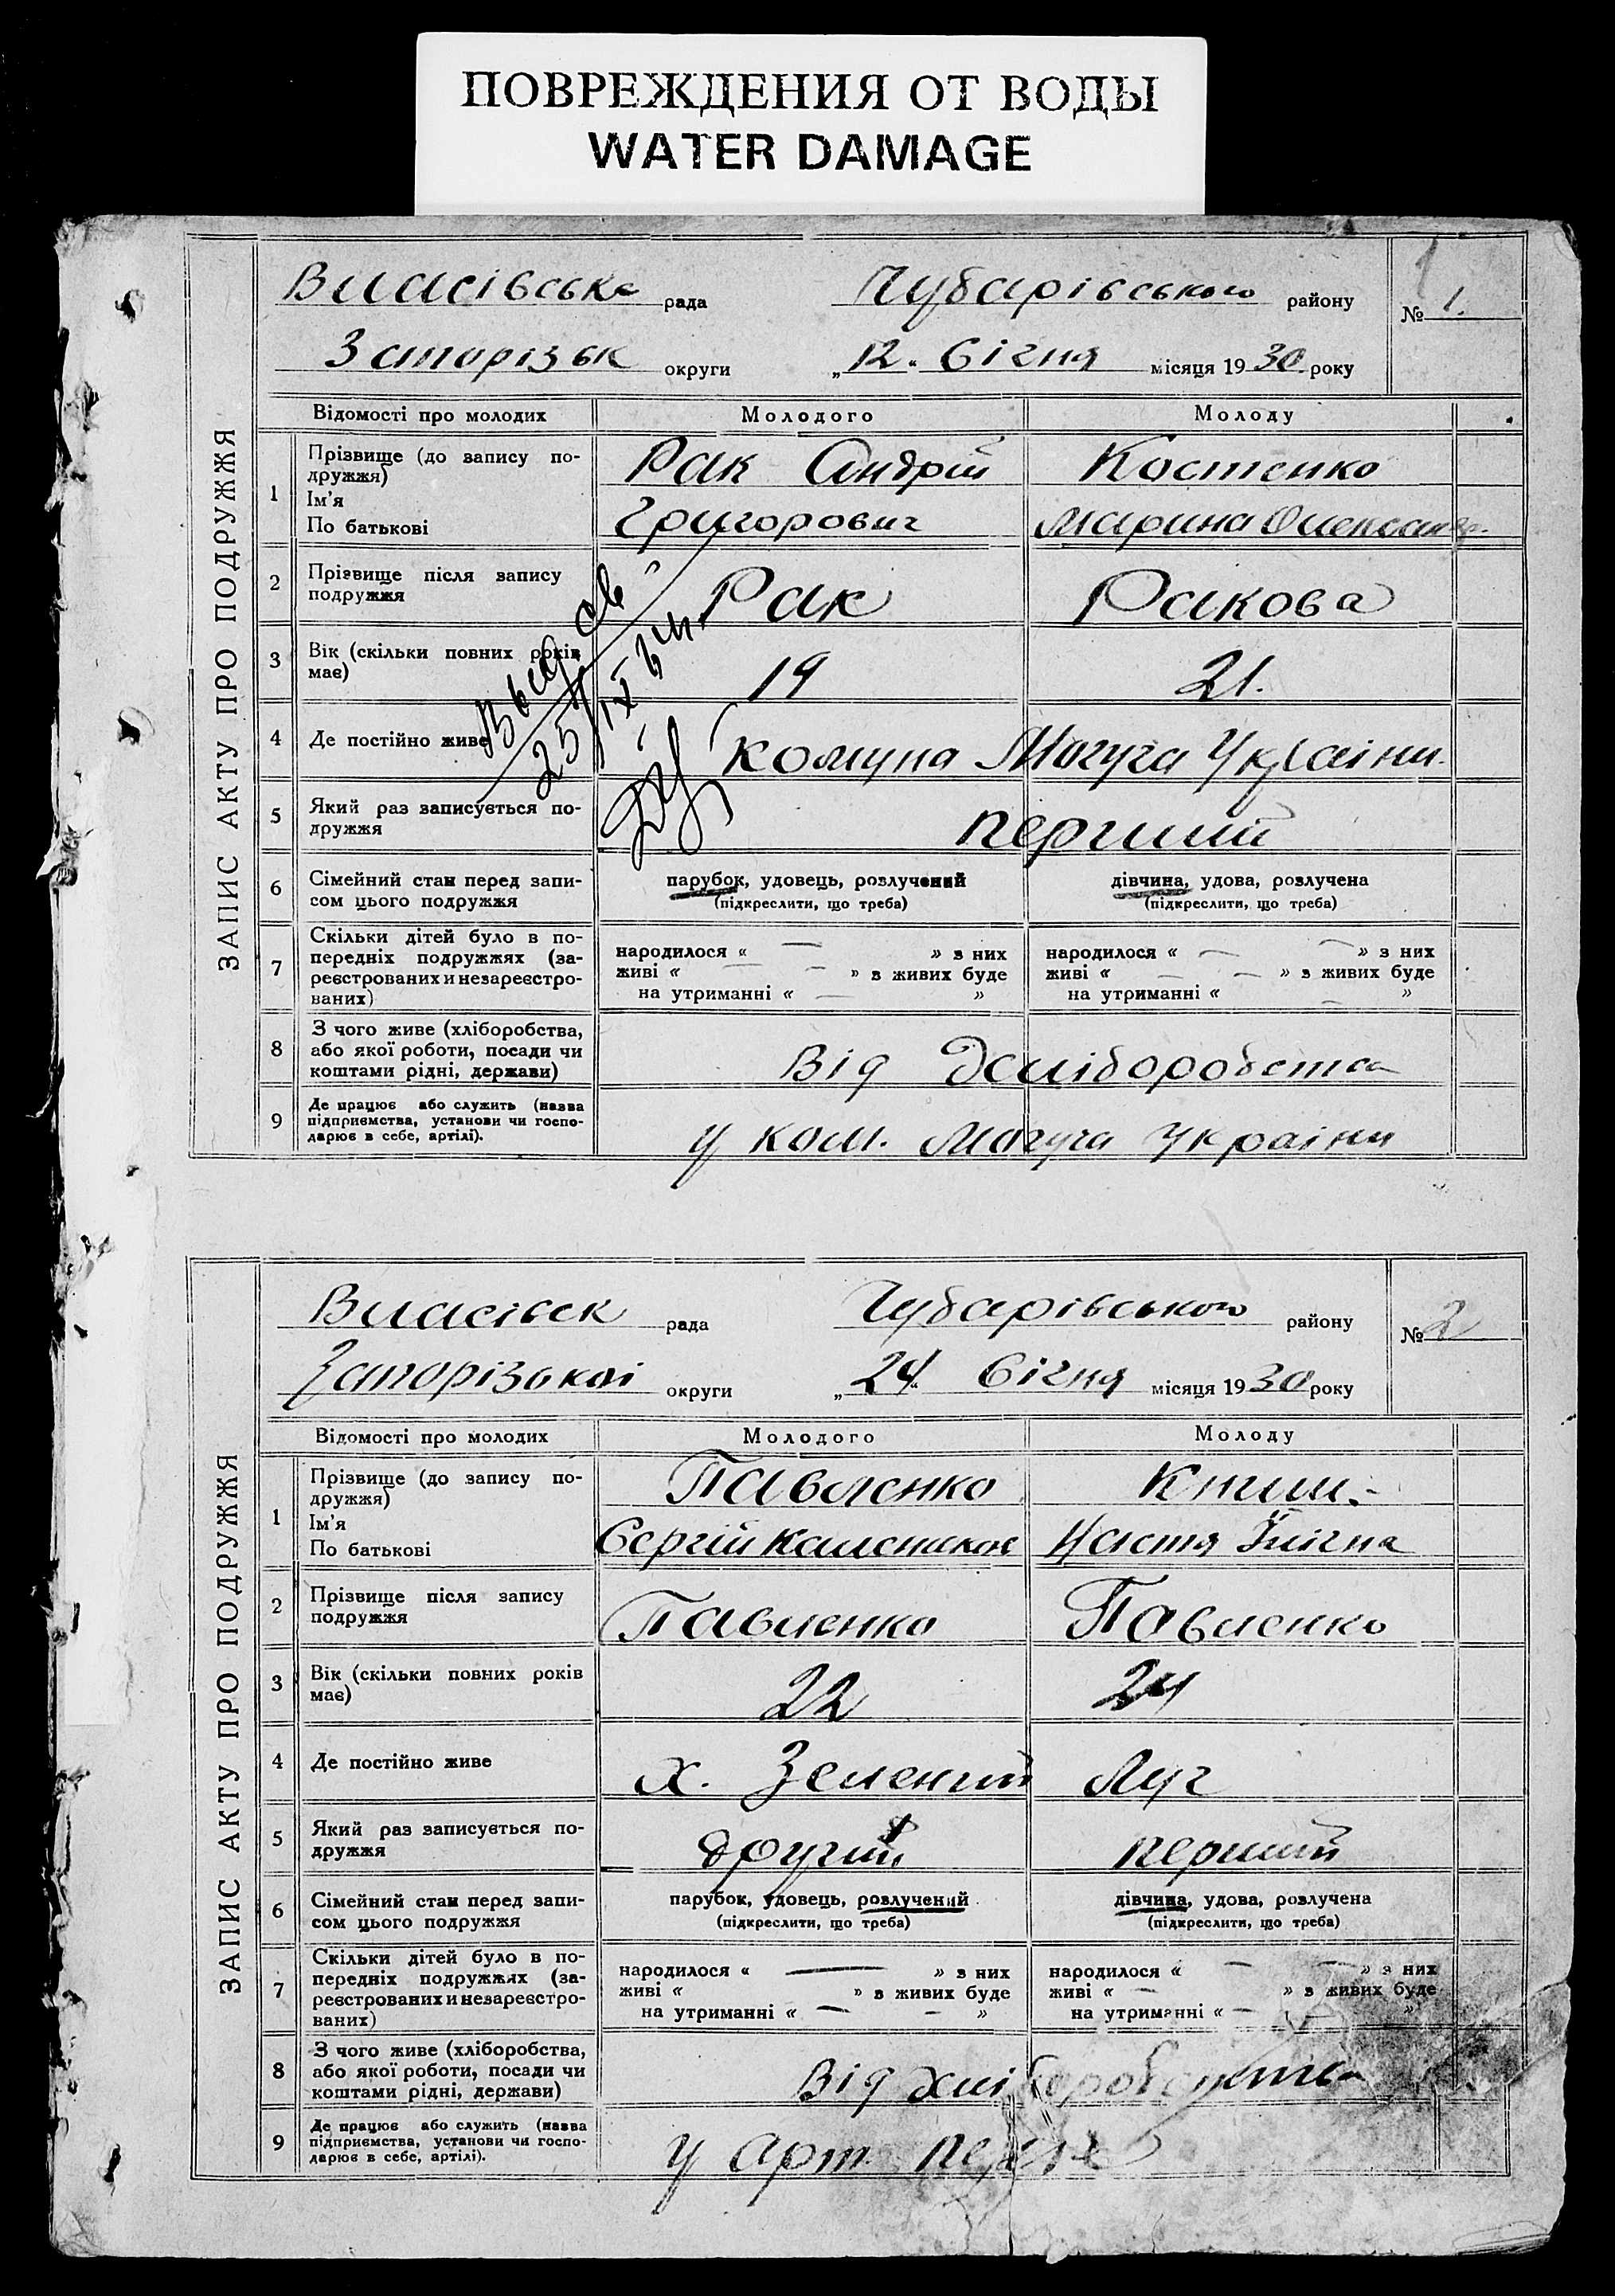 ПОВРЕЖДЕНИЯ ОТ ВОДЫ
WATER DAMAGE
ЗАПИС АКТУ ПРО ПОДРУЖЖЯ
Власівська рада Чубарівського району № 1.
Запорізьк округи „12“ Січня місяця 1930 року
Відомості про молодих Молодого Молоду
1 Прізвище (до запису по-
дружжя)
Ім'я
По батькові
Рак Андрій Костенко
Григорович Марина Олександр.
2 Прізвище після запису
подружжя
Рак Ракова
3 Вік (скільки повних років
має)
19 21.
4 Де постійно живе
комуна Могуча України.
5 Який раз записується по-
дружжя
перший
6 Сімейний стан перед запи-
сом цього подружжя
парубок, удовець, розлучений
(підкреслити, що треба)
дівчина, удова, розлучена
(підкреслити, що треба)
7 Скільки дітей було в по-
передніх подружжях (за-
реєстрованих и незареєстро-
ваних)
народилося « — » з них
живі « — » з живих буде
на утриманні « — »
народилося « — » з них
живі « — » з живих буде
на утриманні « — »
8 З чого живе (хліборобства,
або якої роботи, посади чи
коштами рідні, держави)
Від хліборобства
9 Де працює або служить (назва
підприємства, установи чи госпо-
дарює в себе, артілі).
у ком. Могуча україни
ЗАПИС АКТУ ПРО ПОДРУЖЖЯ
Власівськ рада Чубарівського району № 2
Запорізької округи „24“ Січня місяця 1930 року
Відомості про молодих Молодого Молоду
1 Прізвище (до запису по-
дружжя)
Ім'я
По батькові
Павленко Книш
Сергій Настя Ілічна
2 Прізвище після запису
подружжя
Павленко Павленко
3 Вік (скільки повних років
має)
22 24
4 Де постійно живе
х. Зелений Луг
5 Який раз записується по-
дружжя
другий перший
6 Сімейний стан перед запи-
сом цього подружжя
парубок, удовець, розлучений
(підкреслити, що треба)
дівчина, удова, розлучена
(підкреслити, що треба)
7 Скільки дітей було в по-
передніх подружжях (за-
реєстрованих и незареєстро-
ваних)
народилося « — » з них
живі « » з живих буде
на утриманні « — — »
народилося « — » з них
живі « — » з живих буде
на утриманні « — »
8 З чого живе (хліборобства,
або якої роботи, посади чи
коштами рідні, держави)
Від хліборобства
9 Де працює або служить (назва
підприємства, установи чи госпо-
дарює в себе, артілі).
у арт.